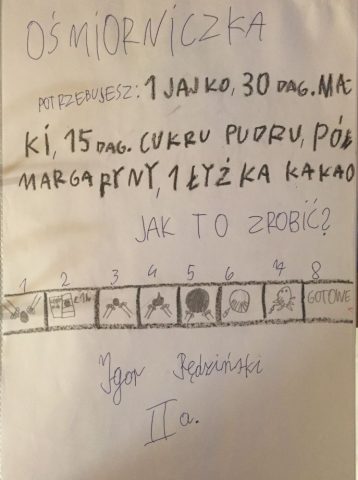 OŚMIORNICZKA
POTRZEBUJESZ: 1 JAJKO, 30 DAG. MĄ
KI, 15 DAG. CUKRU PUDRU, PÓŁ
MARGARYNY, 1 ŁYŻKA KAKAO
JAK TO ZROBIĆ?
1 2 3 4 5 6 7 8
GOTOWE
Igor Będziński
II a.